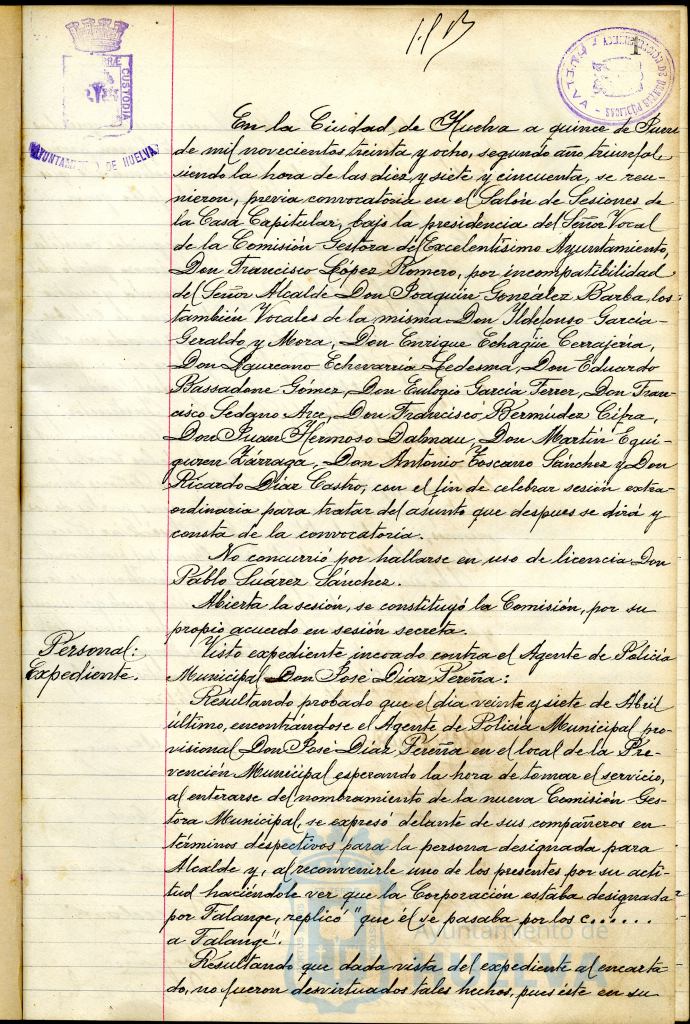 1
PORTUS MARIS ET TERRÆ CUSTODIA
AYUNTAMIENTO DE HUELVA
En la Ciudad de Huelva a quince de Junio
de mil novecientos treinta y ocho, segundo año triunfal
siendo la hora de las diez y siete y cincuenta, se reu-
nieron, previa convocatoria en el Salón de Sesiones de
la Casa Capitular, bajo la presidencia del Señor Vocal
de la Comisión Gestora del Excelentísimo Ayuntamiento,
Don Francisco López Romero, por incompatibilidad
del Señor Alcalde Don Joaquín González Barba, los
también Vocales de la misma Don Ildefonso García-
Geraldo y Mora, Don Enrique Echagüe Cerrajeria,
Don Laureano Echevarría Ledesma, Don Eduardo
Bassadone Gómez, Don Eulogio García Ferrer, Don Fran-
cisco Sedano Arce, Don Francisco Bermúdez Cifra,
Don Juan Hermoso Dalmau, Don Martín Egui-
guren Zárraga, Don Antonio Toscano Sánchez y Don
Ricardo Díaz Castro, con el fin de celebrar sesión extra-
ordinaria para tratar del asunto que despues se dirá y
consta de la convocatoria.
No concurrió por hallarse en uso de licencia Don
Pablo Suárez Sánchez.
Abierta la sesión, se constituyó la Comisión, por su
propio acuerdo en sesión secreta.
Personal:
Expediente.
Visto expediente incoado contra el Agente de Policía
Municipal Don José Díaz Pereña:
Resultando probado que el dia veinte y siete de Abril
último, encontrándose el Agente de Policía Municipal pro-
visional Don José Díaz Pereña en el local de la Pre-
vención Municipal esperando la hora de tomar el servicio,
al enterarse del nombramiento de la nueva Comisión Ges-
tora Municipal, se expresó delante de sus compañeros en
términos despectivos para la persona designada para
Alcalde y, al reconvenirle uno de los presentes por su acti-
tud haciéndole ver que la Corporación estaba designada
por Falange, replicó "que él se pasaba por los c......
a Falange".
Resultando que dada vista del expediente al encarta-
do, no fueron desvirtuados tales hechos, pues éste en su
Ayuntamiento de
HUELVA